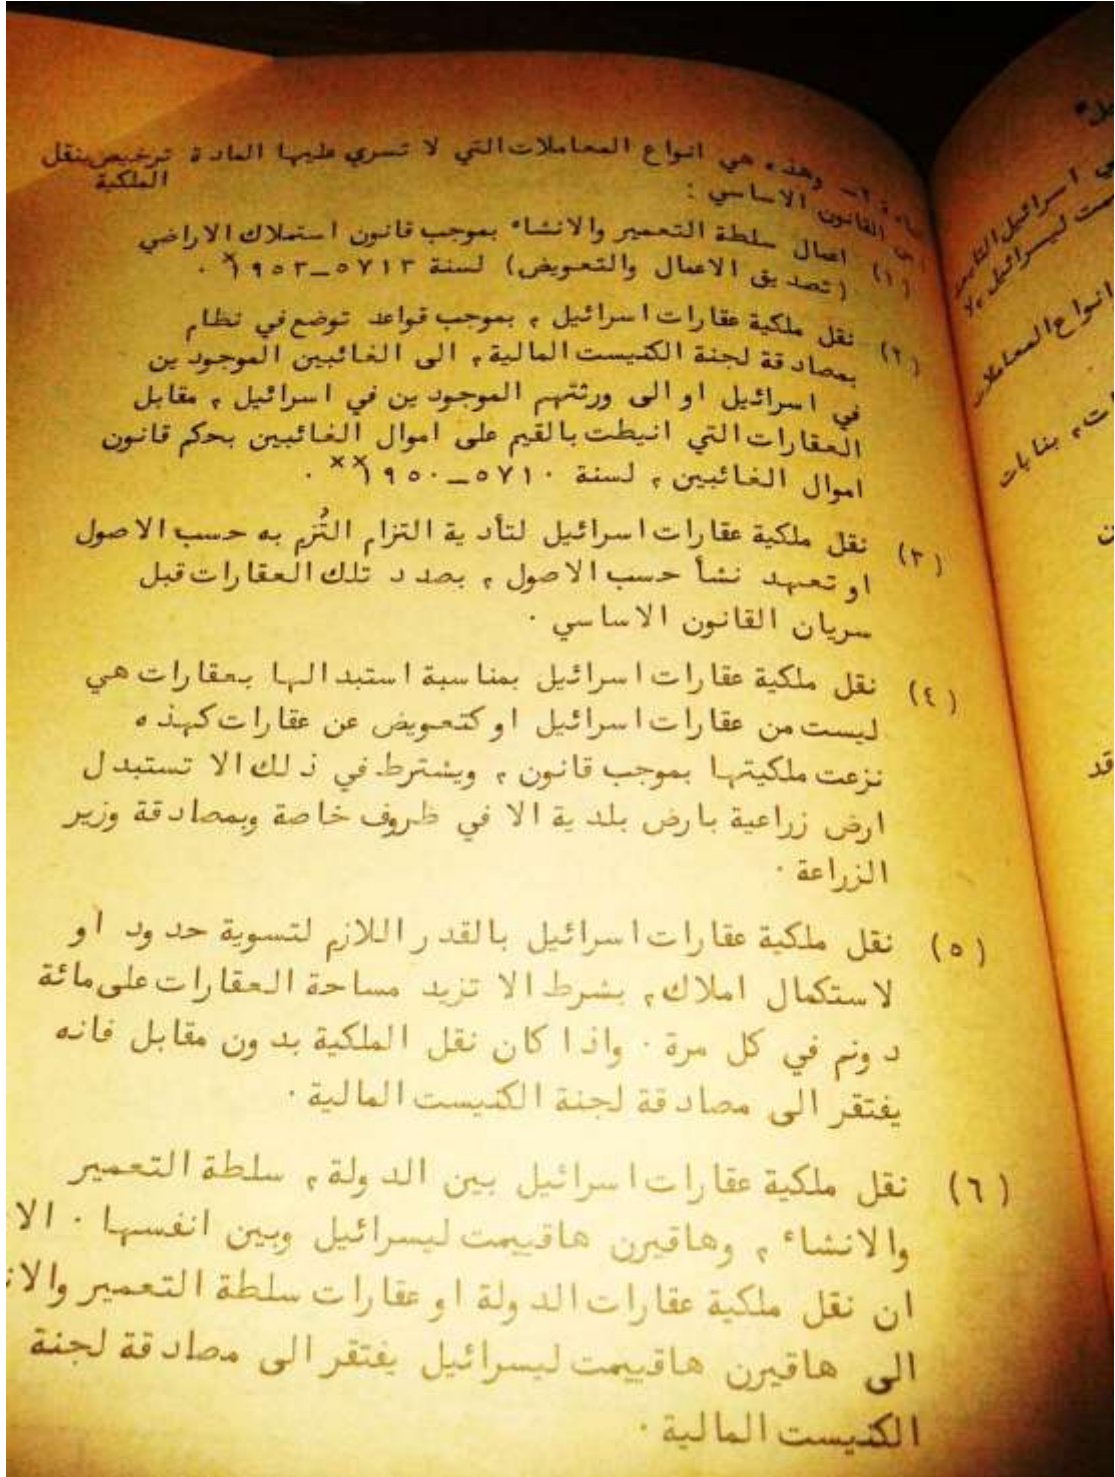 ـادة ٢ـ وهذه هي انواع المعاملات التي لا تسري عليها المادة
من القانون الاساسي :
ترخيص بنقل
الملكية
(١) اعمال سلطة التعمير والانشاء بموجب قانون استملاك الاراضي
(تصديق الاعمال والتعويض) لسنة ٥٧١٣ــ١٩٥٣× .
(٢) نقل ملكية عقارات اسرائيل ، بموجب قواعد توضع في نظام
بمصادقة لجنة الكنيست المالية ، الى الغائبين الموجودين
في اسرائيل او الى ورثتهم الموجودين في اسرائيل ، مقابل
العقارات التي انيطت بالقيم على اموال الغائبين بحكم قانون
اموال الغائبين ، لسنة ٥٧١٠ــ١٩٥٠×× .
(٣) نقل ملكية عقارات اسرائيل لتأدية التزام التُزم به حسب الاصول
او تعهد نشأ حسب الاصول ، بصدد تلك العقارات قبل
سريان القانون الاساسي .
(٤) نقل ملكية عقارات اسرائيل بمناسبة استبدالها بعقارات هي
ليست من عقارات اسرائيل او كتعويض عن عقارات كهذه
نزعت ملكيتها بموجب قانون ، ويشترط في ذلك الا تستبدل
ارض زراعية بارض بلدية الا في ظروف خاصة وبمصادقة وزير
الزراعة .
(٥) نقل ملكية عقارات اسرائيل بالقدر اللازم لتسوية حدود او
لاستكمال املاك ، بشرط الا تزيد مساحة العقارات على مائة
دونم في كل مرة . واذا كان نقل الملكية بدون مقابل فانه
يفتقر الى مصادقة لجنة الكنيست المالية .
(٦) نقل ملكية عقارات اسرائيل بين الدولة ، سلطة التعمير
والانشاء ، وهاقيرن هاقييمت ليسرائيل وبين انفسها . الا
ان نقل ملكية عقارات الدولة او عقارات سلطة التعمير والانـ
الى هاقيرن هاقييمت ليسرائيل يفتقر الى مصادقة لجنة
الكنيست المالية .
اسرائيل
ليسرائيل ، لا
انواع المعاملات
بنايات
قد